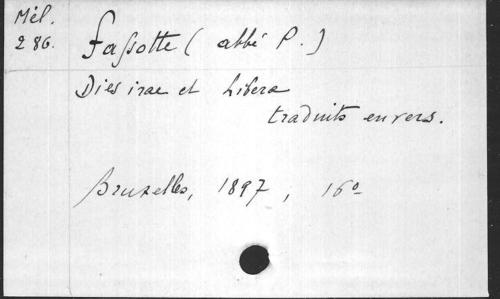 Mél.
286.
Fassotte (abbé P.)
Dies irae et Libera
traduits en vers.
Bruxelles, 1897, 16º